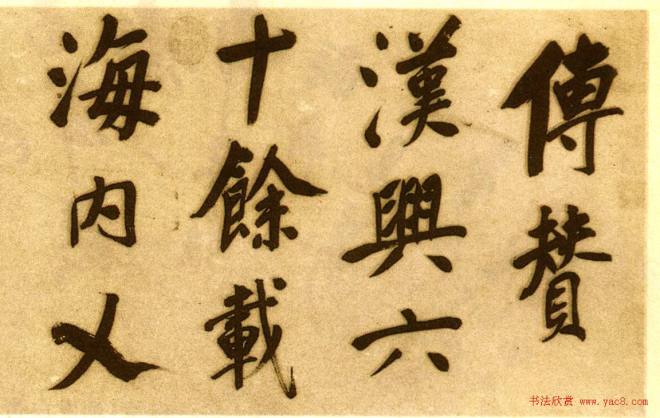 傳賛
漢興六
十餘載
海内乂
书法欣赏 www.yac8.com